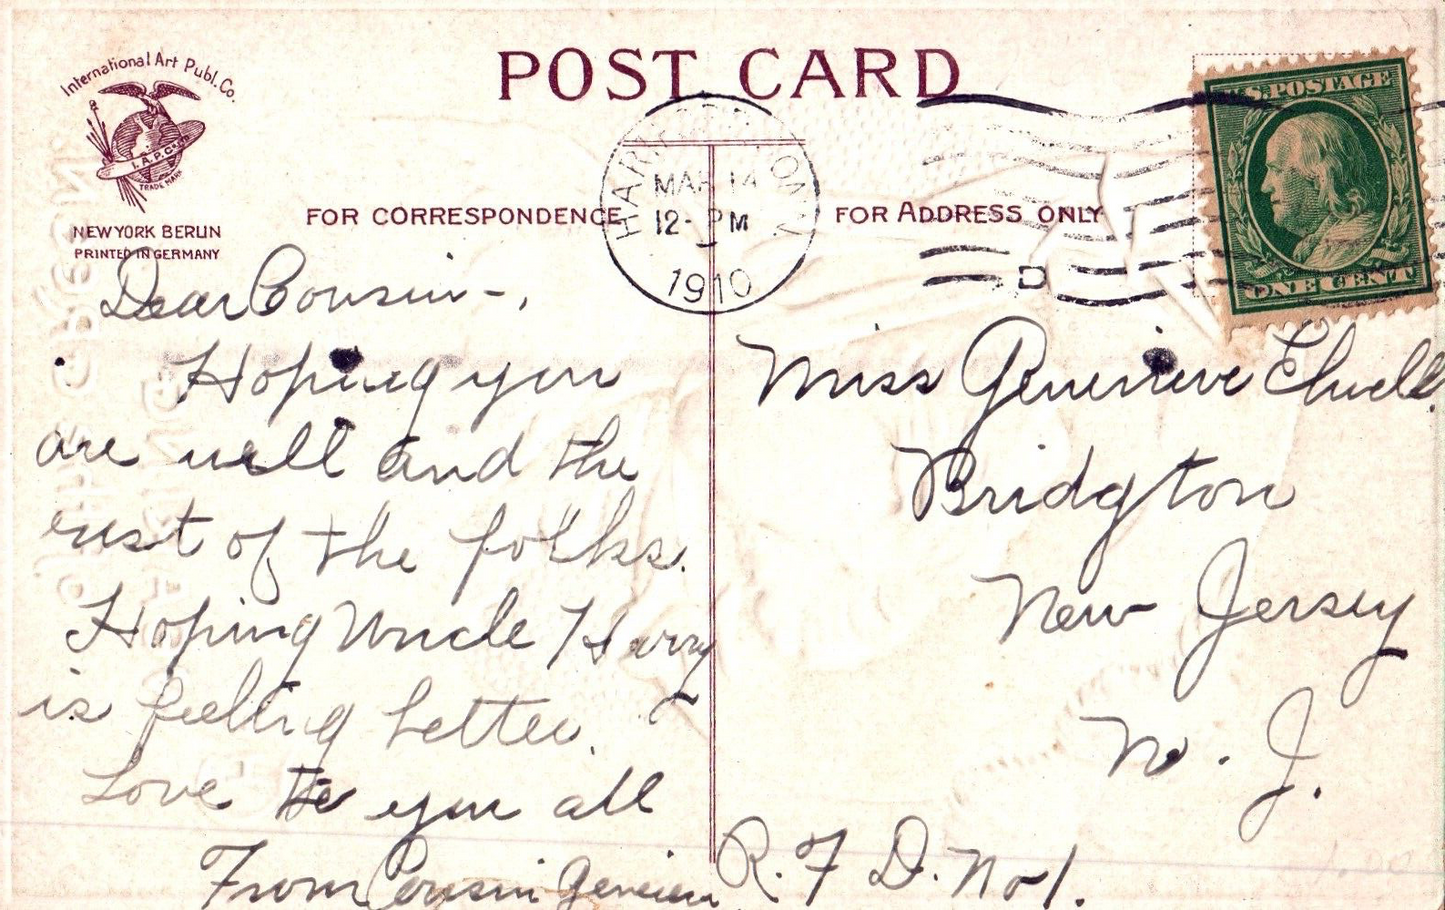 International Art Publ. Co.
I.A.P. Co.
TRADE MARK
NEW YORK BERLIN
PRINTED IN GERMANY
POST CARD
FOR CORRESPONDENCE
FOR ADDRESS ONLY
MAR 14
12 - PM
1910
D
U.S. POSTAGE
ONE CENT
Dear Cousin -,
Hoping you
are well and the
rest of the folks.
Hoping Uncle Harry
is feeling better.
Love to you all
From Cousin Genevieve
Miss Genevieve Elwell
Bridgton
New Jersey
N. J.
R. F. D. No 1.
1.00